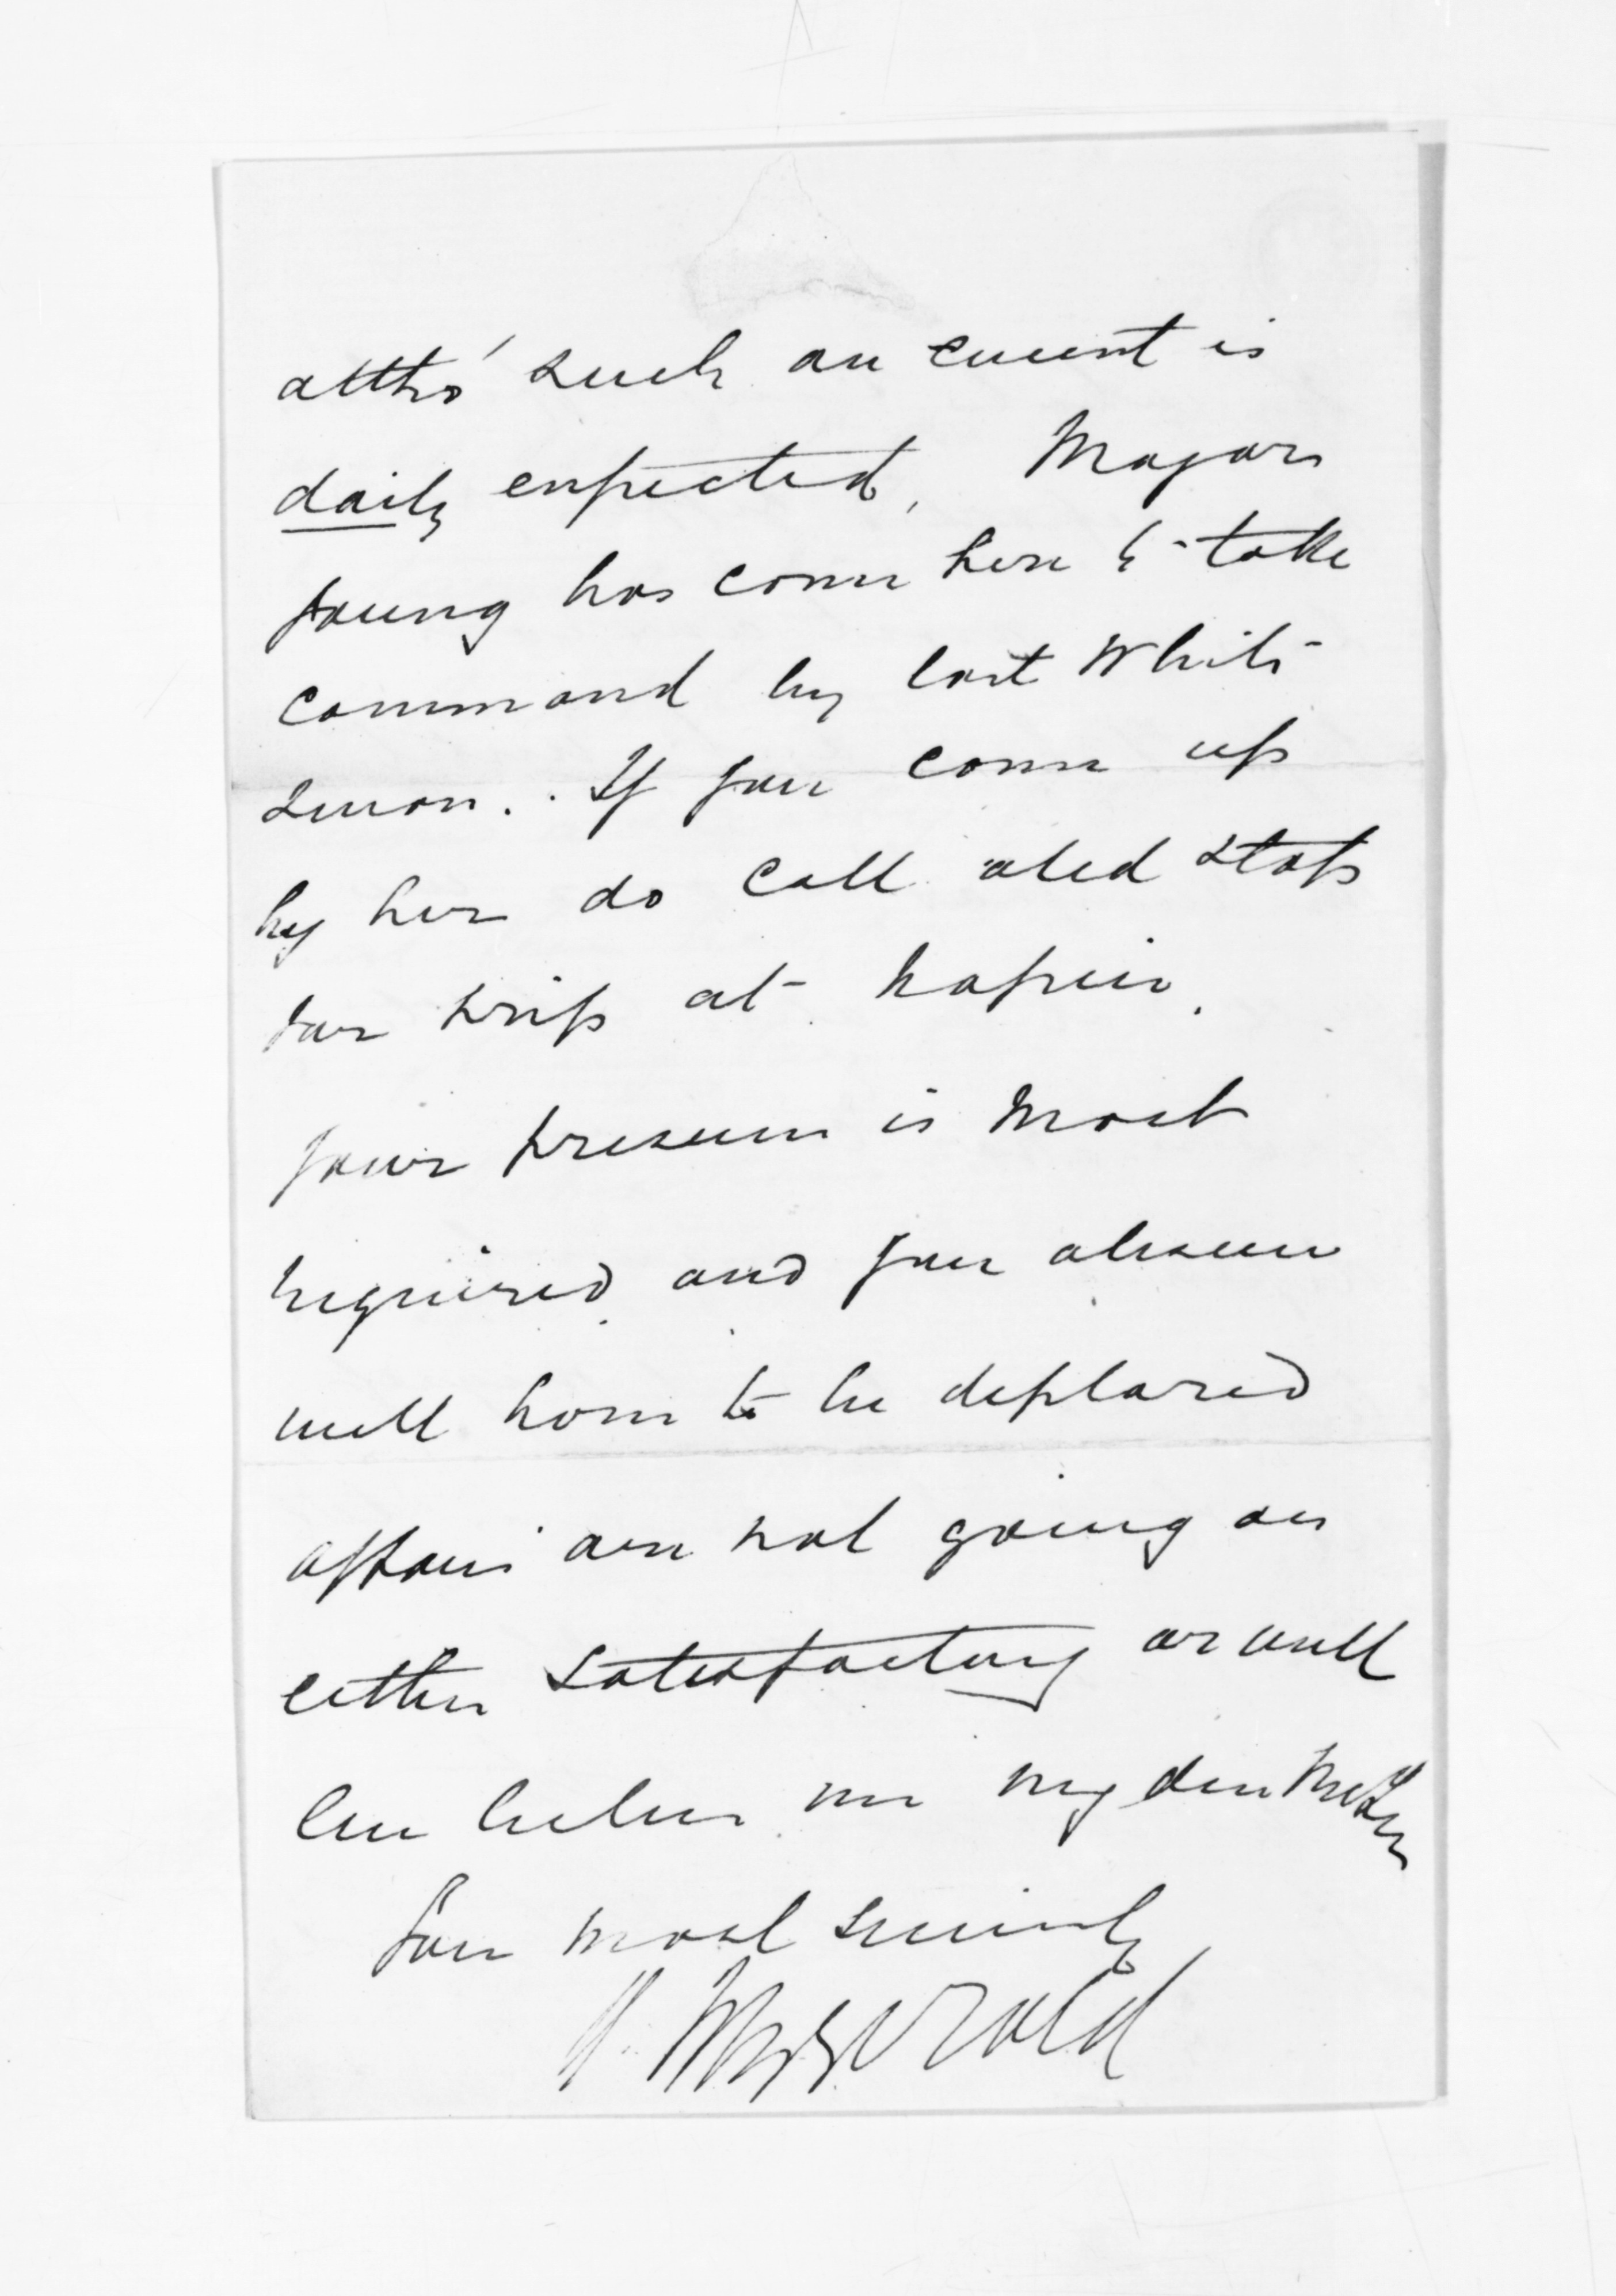 altho' such an event is
daily expected, Major
Young has come here to take
command by last White
swan. If you come up
by her do call and stop
one trip at Napier.
Your presence is most
required and your absence
will have to be deplored
affairs are not going on
either satisfactory or well
here believe me my dear McLean
Your most sincerely
J. Fitzgerald